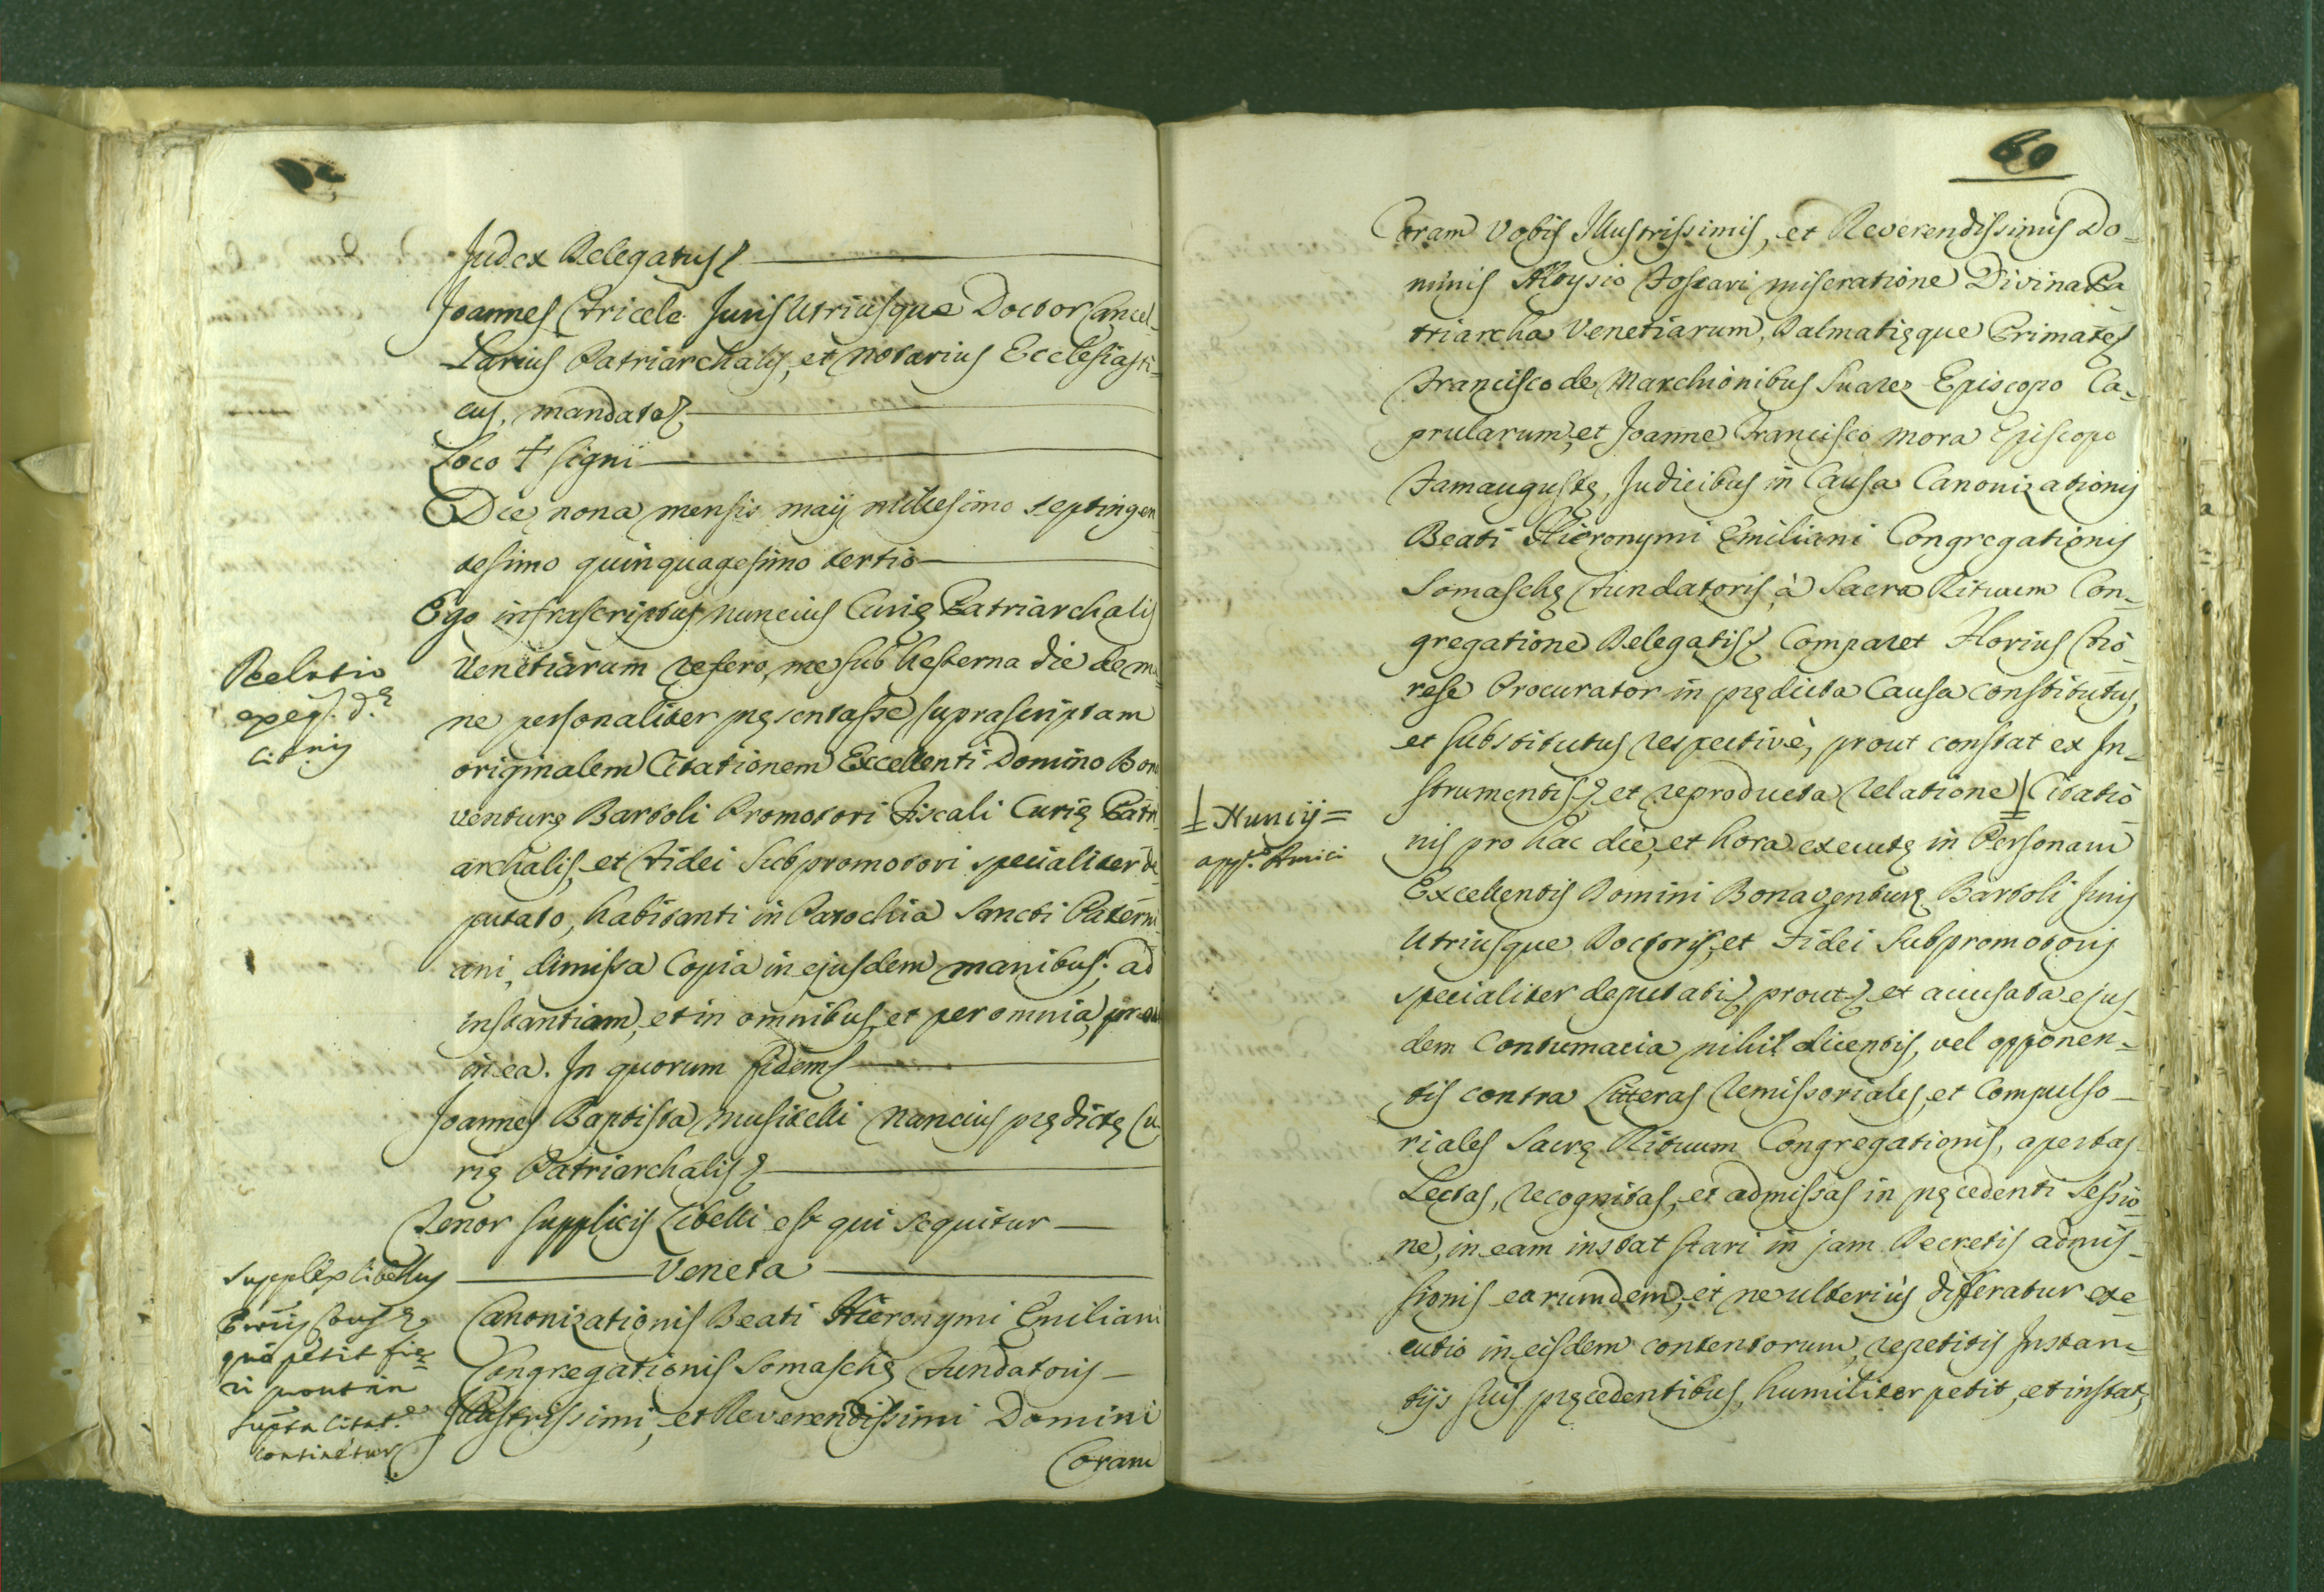 Judex Delegatus
Joannes Cricele Juris Utriusque Doctor Cancel-
Larius Patriarchalis, et notarius Ecclesiasti-
cus, mandato
Loco † signi
Die nona mensis maij millesimo septingen
tesimo quinquagesimo tertio
Ego infrascriptus nuncius Curię Patriarchalis
Venetiarum refero, me sub hesterna die de m
ne personaliter pręsentasse suprascriptam
originalem Citationem Excellenti Domino Bon
venturę Bartoli Promotori Fiscali Curię Patri
archalis, et Fidei Subpromotori specialiter de
putato, habitanti in Parochia Sancti Patern
ani, dimissa Copia in ejusdem manibus; ad
instantiam, et in omnibus, et per omnia, prou
in ea. In quorum fidem
Joannes Baptista Musitelli Nuncius prędictę Cu
rię Patriarchalis
Tenor supplicis Libelli est qui sequitur
Veneta
Canonizationis Beati Hieronymi Emiliani
Congregationis Somaschę Fundatoris
Illustrissimi, et Reverendissimi Domini
Coram
Relatio
citnis
Supplex libellus
quo petit fie
ri prout in
supta citat.e
continetur
60
Coram Vobis Illustrissimis, et Reverendissimis Do-
minis Aloysio Foscari miseratione Divina Pa
triarcha Venetiarum, Dalmatięque Primate
Francisco de Marchionibus Suarez Episcopo Ca-
prularum, et Joanne Francisco Mora Episcopo
Famaugustę, Judicibus in Causa Canonizationis
Beati Hieronymi Emiliani Congregationis
Somaschę Fundatoris, à Sacra Rituum Con-
gregatione Delegatis Comparet Florius Fio-
rese Procurator in prędicta Causa constitutus,
et substitutus respectivè, prout constat ex In-
strumentis et reproducta Relatione Citatio
nis pro hac die, et hora executę in Personam
Excellentis Domini Bonaventurę Bartoli Juris
Utriusque Doctoris, et Fidei Subpromotoris
specialiter deputati prout et accusata ejus-
dem Contumacia nihil dicentis, vel opponen-
tis contra Litteras Remissoriales, et Compulso-
riales Sacrę Rituum Congregationis, apertas
Lectas, recognitas, et admissas in pręcedenti Sessio
ne, in eam instat stari in jam Decretis admis-
sionis earumdem, et ne ulteriùs differatur exe
cutio in eisdem contentorum, repetitis Instan-
tijs suis pręcedentibus, humiliter petit, et instat,
Nuncij =